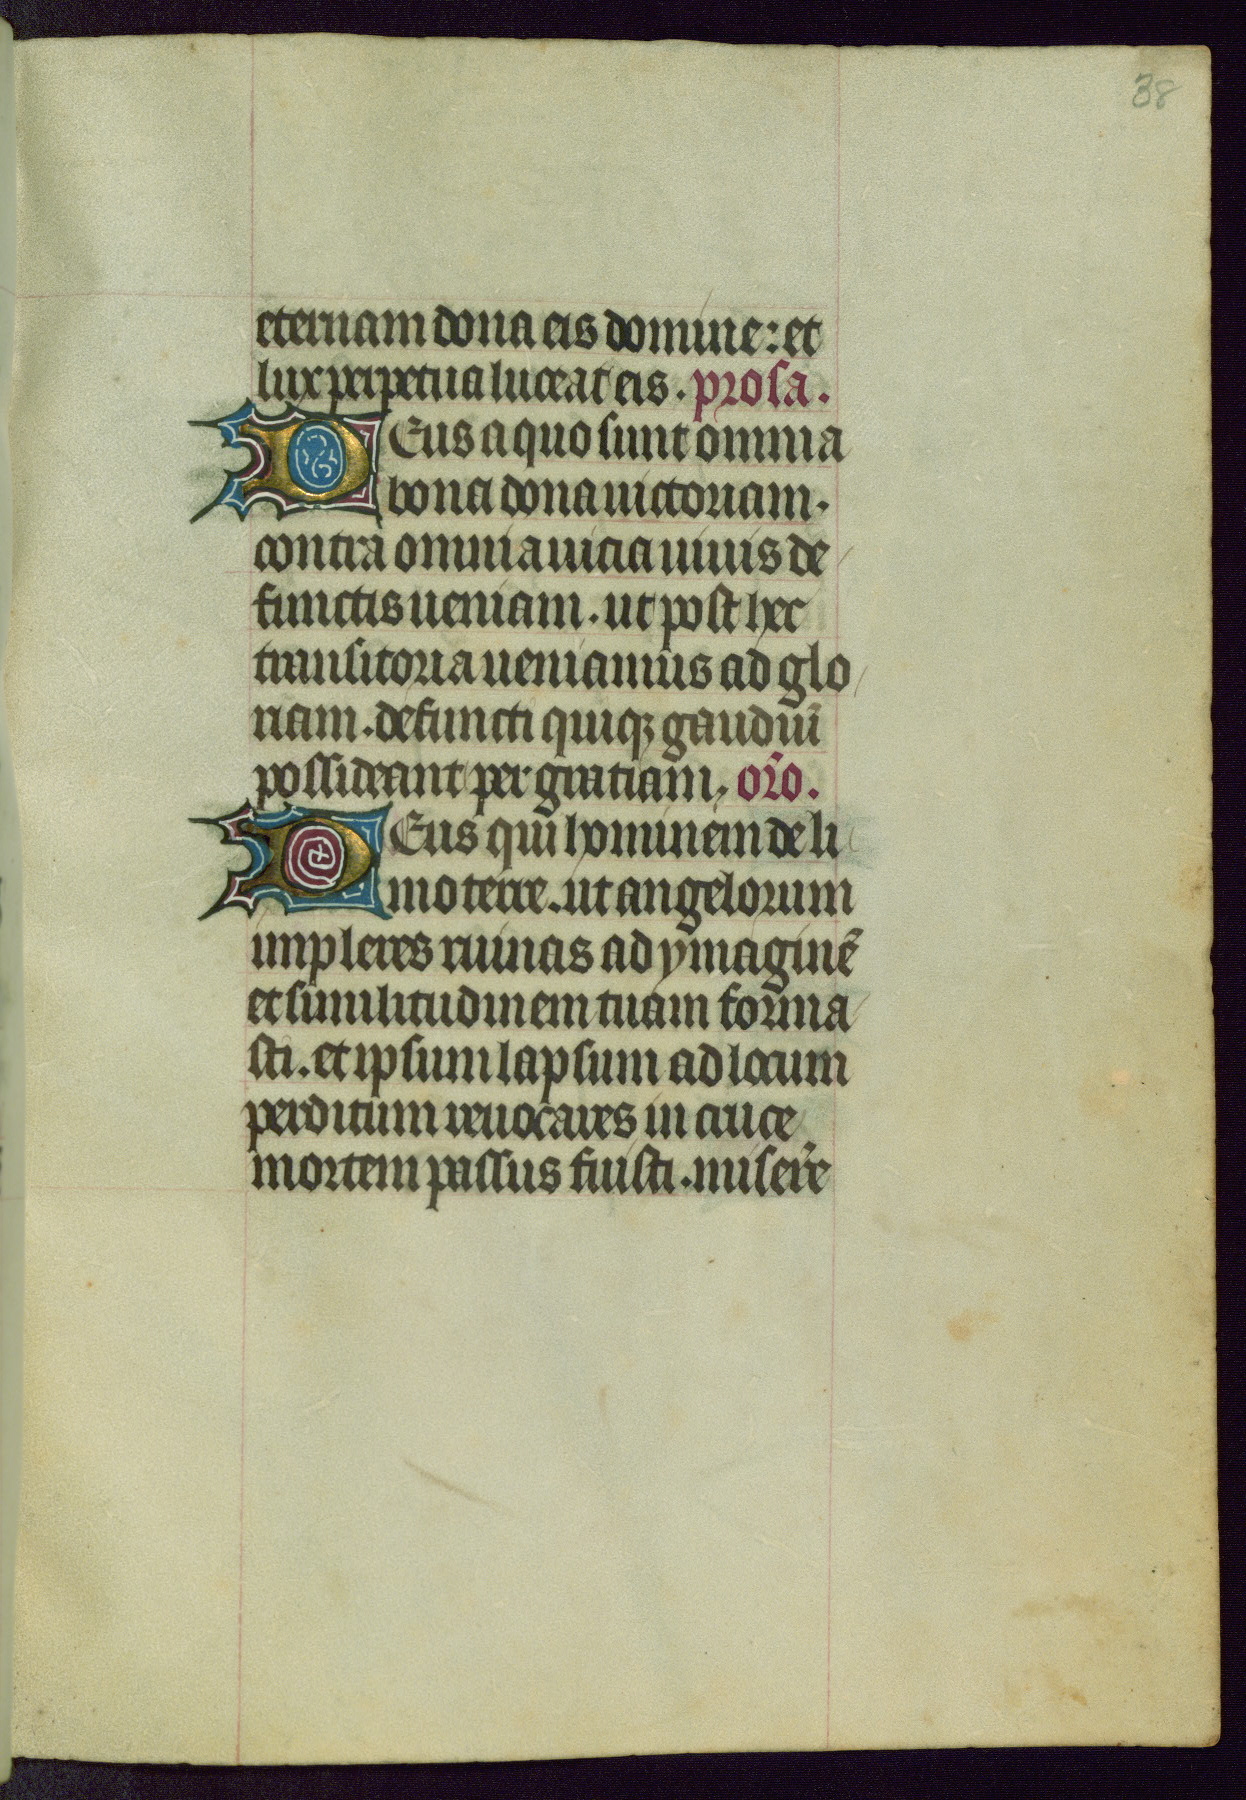 38
eternam dona eis domine: et
lux perpetua luceat eis. prosa.
DEus a quo sunt omnia
bona dona uictoriam.
contra omnia uicia uiuis de
functis ueniam. ut post hec
transitoria ueniamus ad glo
riam. defuncti quiqꝫ gaudiū
possideant per gratiam. or̄o.
DEus qui hominem de li
mo terre. ut angelorum
impleres ruinas ad ymaginē
et similitudinem tuam forma
sti. et ipsum lapsum ad locum
perditum reuocares in cruce
mortem passus fuisti. misere